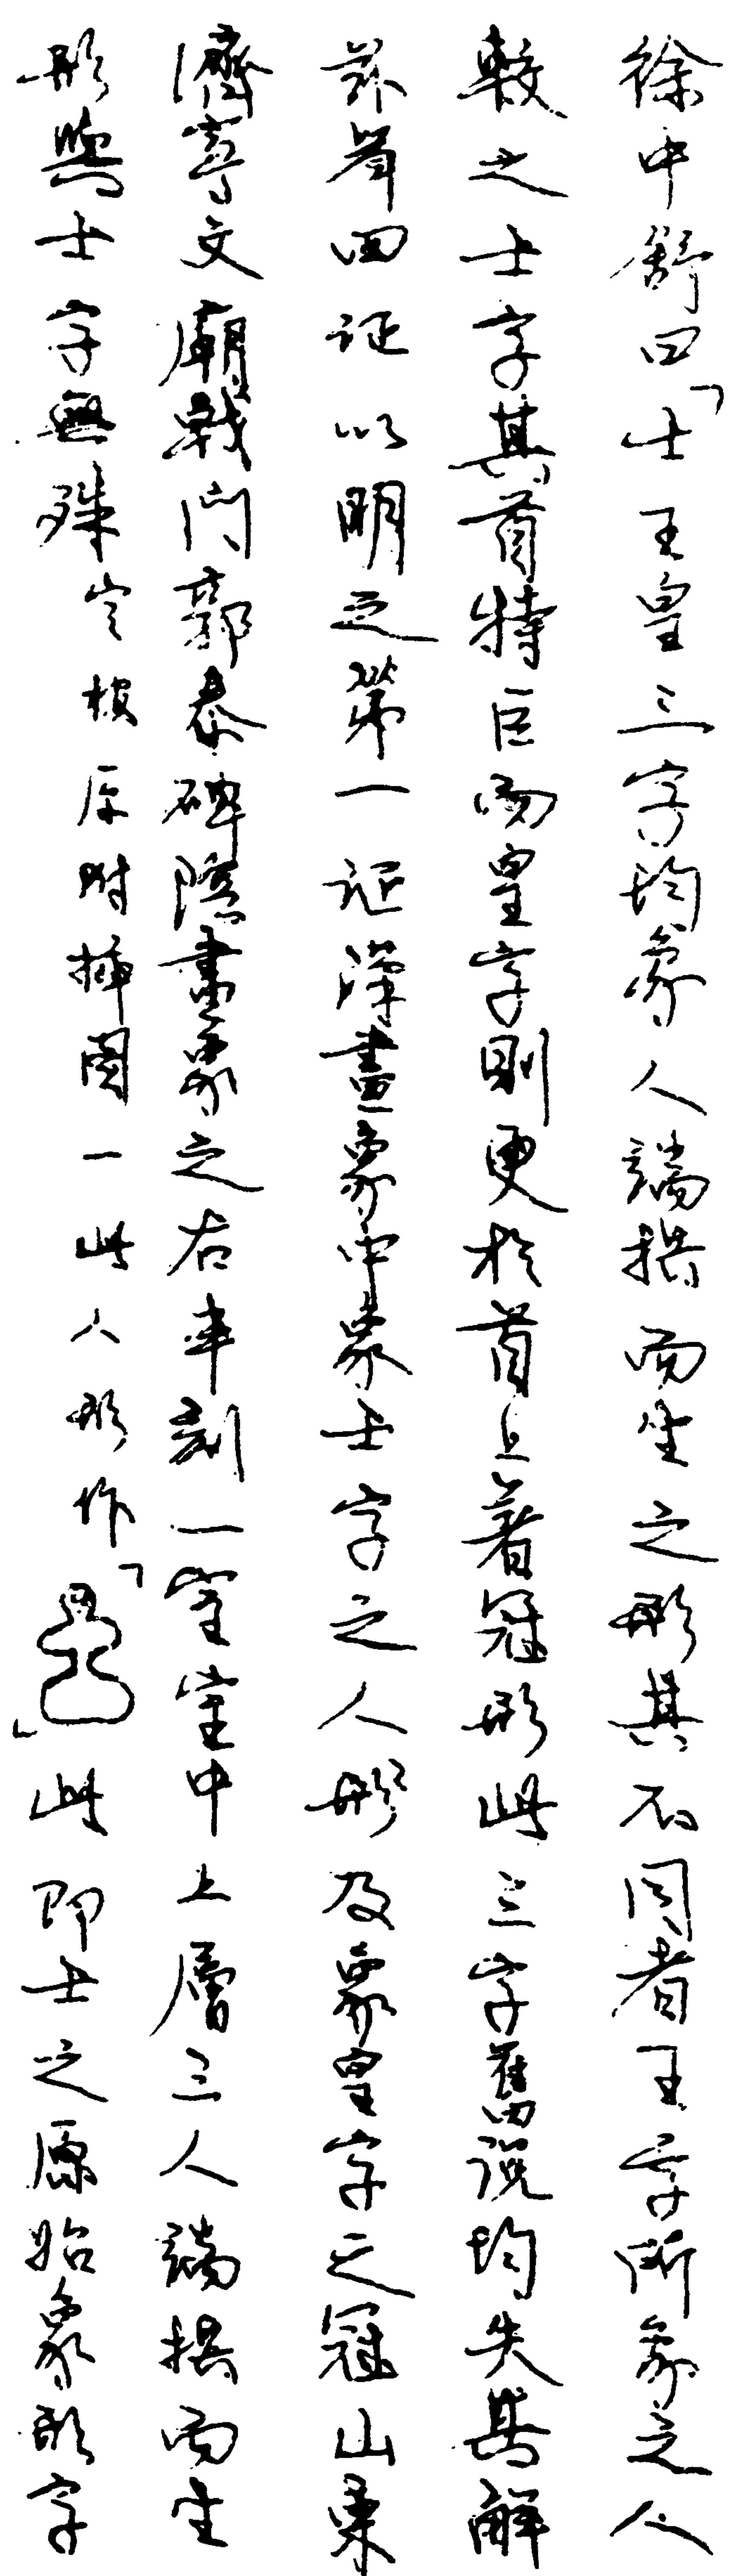 徐中舒曰「士王皇三字均象人端拱而坐之形其不同者王字所象之人
較之士字其首特巨而皇字則更於首上著冠形此三字舊說均失其解
茲舉四証以明之第一証漢畫象中象士字之人形及象皇字之冠山東
濟寧文廟戟門郭泰碑陰畫象之右半刻一室室中上層三人端拱而坐
形與士字無殊宏按原附插圖一此人形作「」此即士之原始象形字